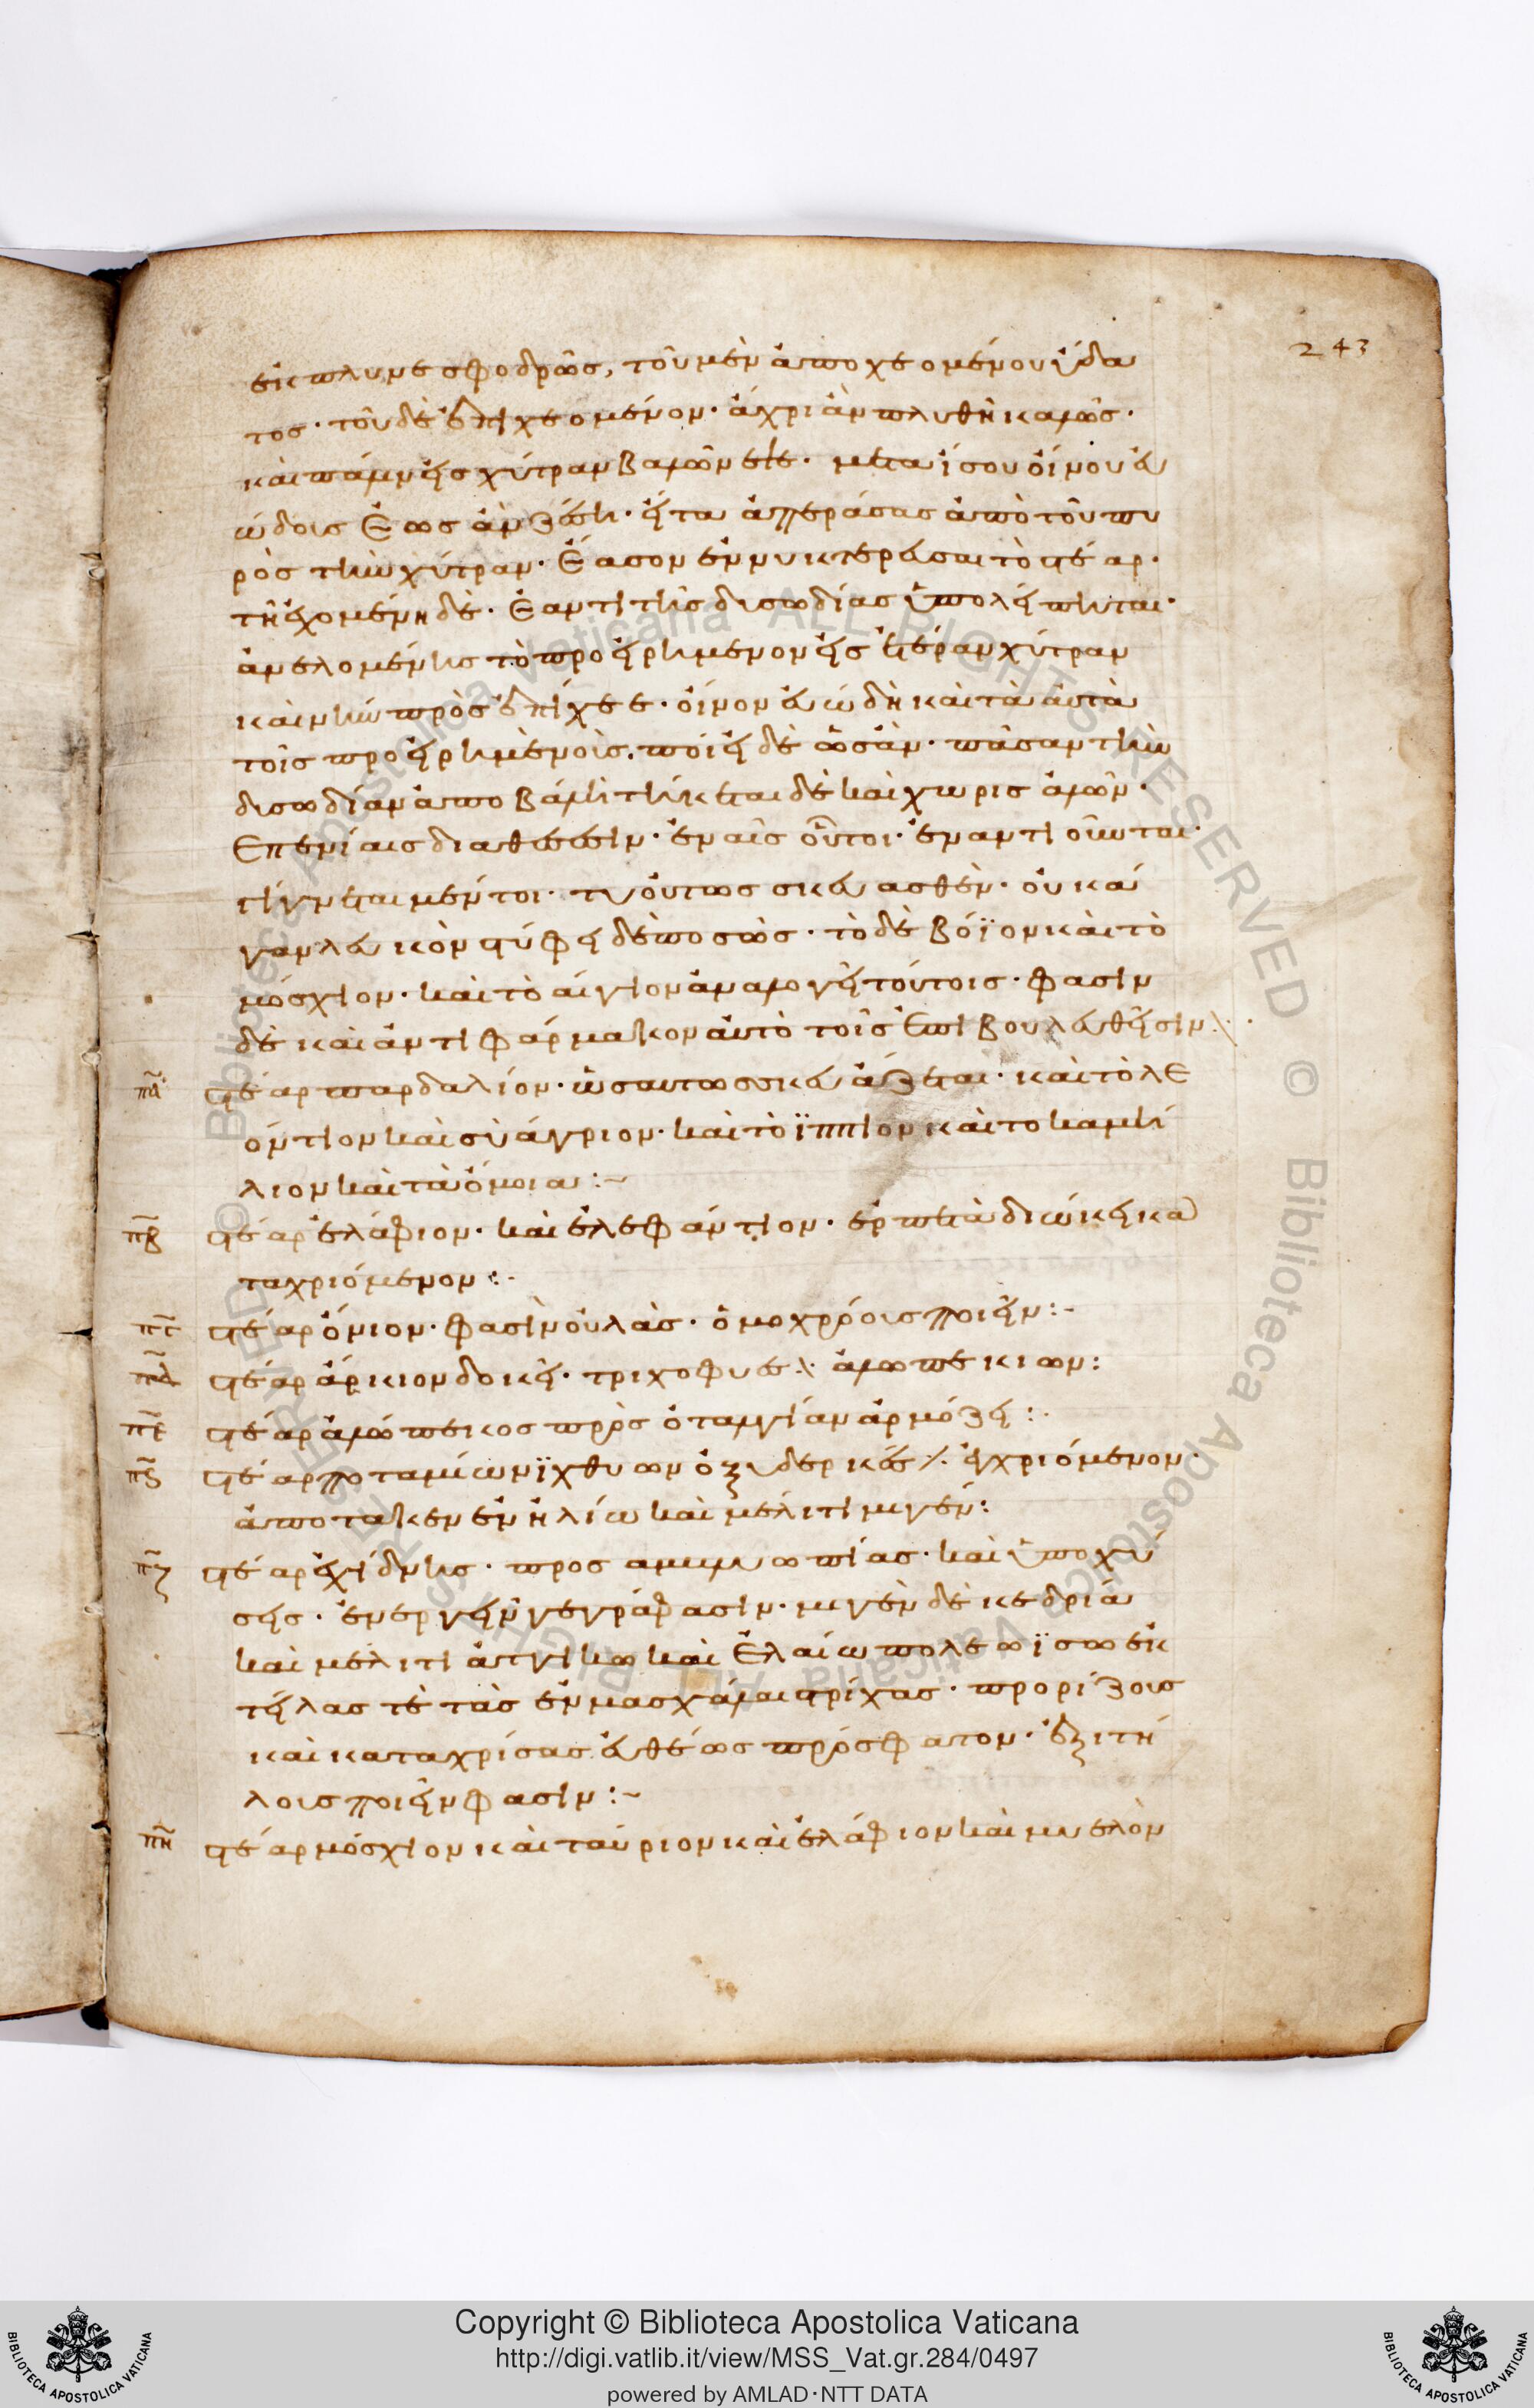 243
ἐκπλυνε σφοδρῶς, τοῦ μὲν ἀποχεομένου ὕδα
τος· τοῦ δὲ ἐπιχεομένον· ἄχρι ἂν πλυθῆ καλῶς·
καὶ πάλιν εἰς χύτραν βαλὼν ἕψε· μετα ἴσου οἴνου εὐ
ώδους ἕως ἂν ζέση· εἴτα ἀπεράσας ἀπὸ τοῦ πυ
ρὸς τὴν χύτραν· ἔασον ἐννυκτερεύσαι τὸ στέαρ·
τῆ ἐχομένη δὲ· ἐαν τι τῆς δυσωδίας ὑπολείπηται·
ἀνελομένης τὸ προειρημενον εἰς ἑτέραν χύτραν
καὶ νῦν πρὸς ἐπίχεε· οἴνον εὐώδη καὶ τὰ ἀυτὰ
τοῖς προειρημένοις. ποίει δὲ ὡσὰν· πᾶσαν τὴν
δυσωδίαν ἀποβάλη τήκεται δὲ καὶ χωρις ἁλῶν·
Επ ενίαις διαθέσεσιν· ἐν αἷς οὗτοι· ἐναντιοῦνται·
γίγνεται μέντοι· τὸ οὕτως σκευασθὲν· οὐ κα
γαν λευκὸν στύφει δὲ ποσῶς· τὸ δὲ βόϊον καὶ τὸ
μόσχιον· καὶ τὸ αἴγιον ἀναλογεῖ τούτοις· φασὶν
δὲ καὶ ἀντιφάρμακον ἀυτὸ τοῖς ἐπιβουλευθεῖσιν
πα στέαρ παρδαλίον· ὡσαυτως σκευάζεται· καὶ τὸ λε
όντιον καὶ σὺάγριον· καὶ τὸ ἵππιον καὶ το καμή
λιον καὶ τὰ ὅμοια :~
πβ στέαρ ἐλάφιον· καὶ ἐλεφάντιον· ἑρπετὰ διώκει κα
ταχριόμενον :·
πγ στέαρ ὄνιον· φασὶν οὐλὰς· ὁμοχρόους ποιεῖν :-
πδ στέαρ ἄρκιον δοκεῖ· τριχοφυε· ἀλωπεκιων:
πε στέαρ ἀλώπεκος πρὸς ὀταλγίαν ἁρμόζει :·
πς στέαρ ποταμίων ἰχθυων ὀξυδερκές· ἐγχριόμενον·
ἀποτακεν ἐν ἡλίω καὶ μέλιτι μιγέν:
πζ στέαρ ἐχίδνης· προς αμβλυωπίας· καὶ ὑποχύ
σεις· ἐνεργεῖν γεγράφασιν· μιγὲν δὲ κεδρία
καὶ μέλιτι ἀττικω καὶ ἐλαίω πολεω ἴσω ἐκ
τείλας τὲ τὰς ἐν μασχάλαι τρίχας· προρίζους
καὶ καταχρίσας ἐυθέως πρόσφατον· ἐξιτή
λους ποιεῖν φασὶν :~
πη στέαρ μόσχιον καὶ ταύριον καὶ ἐλάφιον καὶ μυελὸν
Copyright © Biblioteca Apostolica Vaticana
http://digi.vatlib.it/view/MSS_Vat.gr.284/0497
powered by AMLAD·NTT DATA
BIBLIOTECA APOSTOLICA VATICANA
BIBLIOTECA APOSTOLICA VATICANA